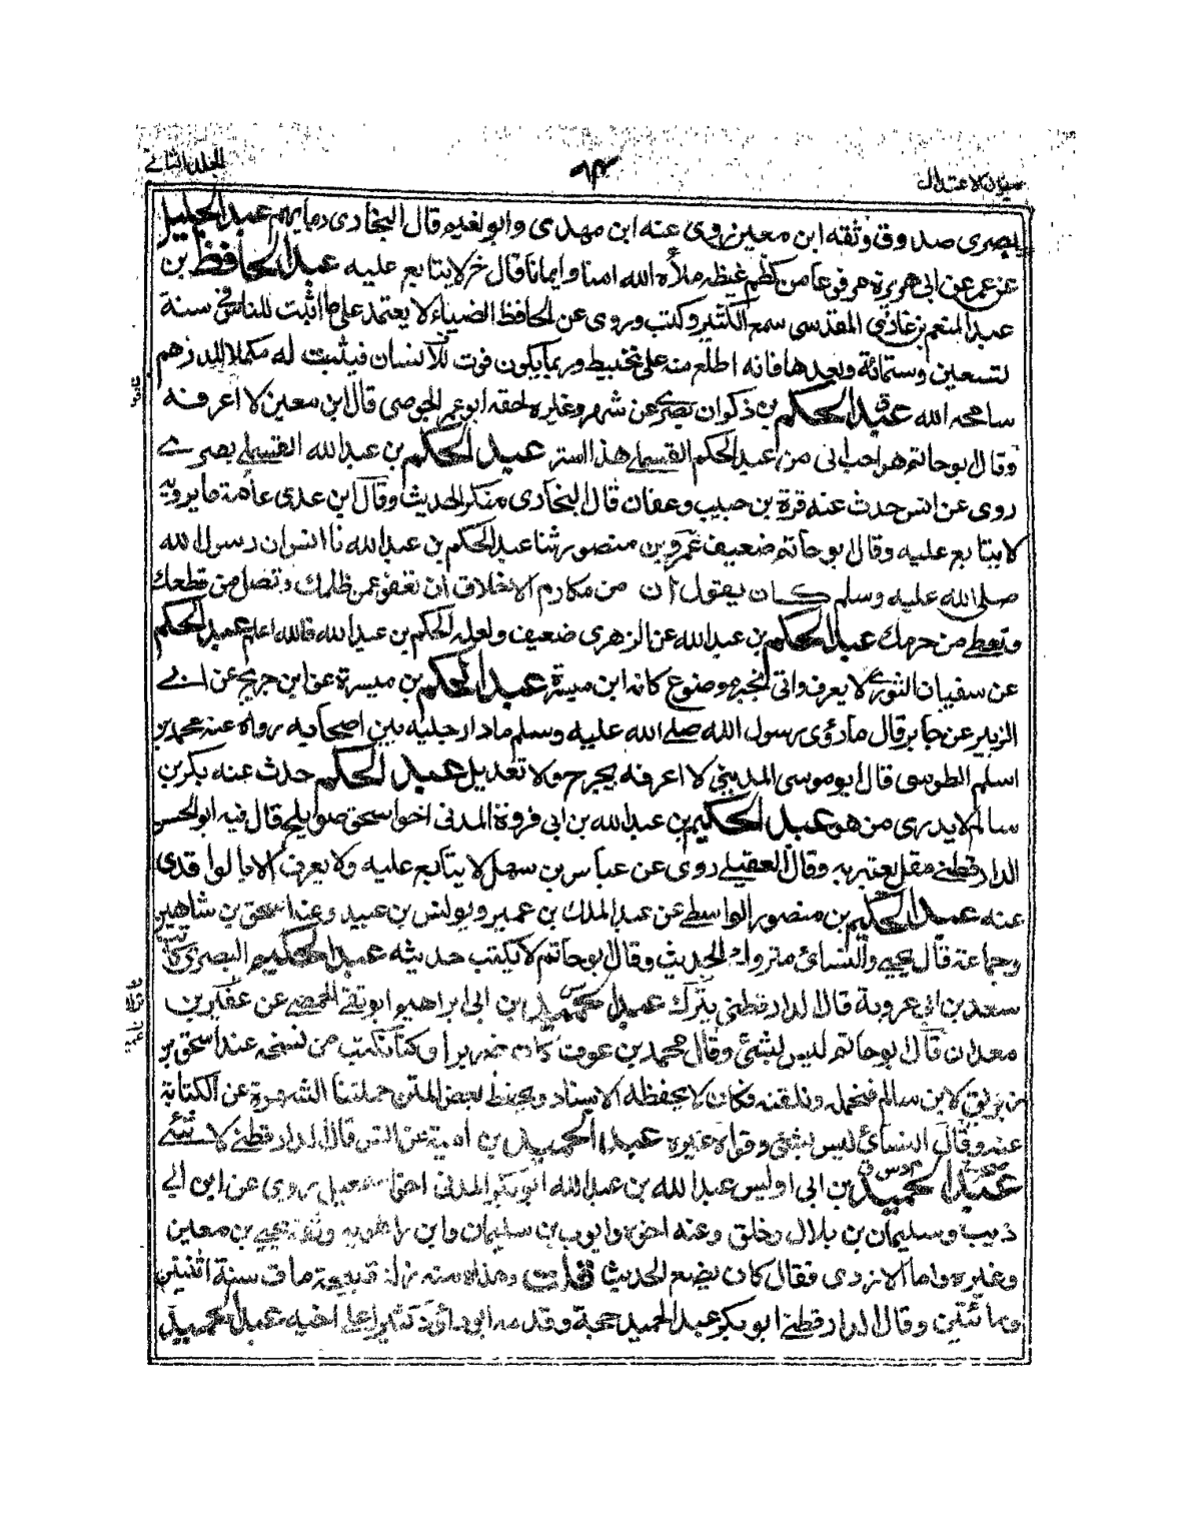 ميزان الاعتدال
٩٤
المجلد الثانى
بصرى صدوق وثقه ابن معين روى عنه ابن مهدى وابو نعيم قال البخارى ربما يهم عبد الجليل
عن عمر عن ابى هريرة مرفوعا من كظم غيظه ملأه الله امنا وايمانا قال خ لا يتابع عليه عبد الحافظ بن
عبد المنعم بن غازى المقدسى سمع الكثير وكتب وروى عن الحافظ الضياء لا يعتمد على ما اثبت للناس فى سنة
تسعين وستمائة وبعدها فانه اطلع منه على تخبيط وربما يكون فوت للانسان فيثبت له مكملا للدرهم
سامحه الله عبد الحكم بن ذكوان بصرى عن شهر وغيره لحقه ابو عمر الحوضى قال ابن معين لا اعرفه
وقال ابو حاتم هو احب الى من عبد الحكم القسملى هذا الستر عبد الحكم بن عبد الله القسملى بصرى
روى عن انس حدث عنه قرة بن حبيب وعفان قال البخارى منكر الحديث وقال ابن عدى عامة ما يرويه
لا يتابع عليه وقال ابو حاتم ضعيف عمرو بن منصور ثنا عبد الحكم بن عبد الله نا انس ان رسول الله
صلى الله عليه وسلم كان يقول ان من مكارم الاخلاق ان تعفو عمن ظلمك وتصل من قطعك
وتعطى من حرمك عبد الحكم بن عبد الله عن الزهرى ضعيف ولعله الحكم بن عبد الله فالله اعلم عبد الحكم
عن سفيان الثورى لا يعرف واتى بخبر موضوع كانه ابن ميسرة عبد الحكم بن ميسرة عن ابن جريج عن ابى
الزبير عن جابر قال ما رؤى رسول الله صلى الله عليه وسلم مادا رجليه بين اصحابه رواه عنه محمد بن
اسلم الطوسى قال ابو موسى المدينى لا اعرفه بجرح ولا تعديل عبد الحكم حدث عنه بكر بن
سالم لا يدرى من هو عبد الحكيم بن عبد الله بن ابى فروة المدنى اخو اسحق صويلح قال فيه ابو الحسن
الدارقطنى مقل يعتبر به وقال العقيلى روى عن عباس بن سهل لا يتابع عليه ولا يعرف الا به الواقدى
عنه عبد الحكيم بن منصور الواسطى عن عبد الملك بن عمير ويونس بن عبيد وعنه اسحق بن شاهين
وجماعة قال يحيى والنسائى متروك الحديث وقال ابو حاتم لا يكتب حديثه عبد الحكيم البصرى
سعد بن ابى عروبة قال الدارقطنى يترك عبد الحميد بن ابراهيم ابو تقى الحمصى عن عفير بن
معدان قال ابو حاتم ليس بشئ وقال محمد بن عوف كان ضريرا وكنا نكتب من نسخه عند اسحق بن
زبريق لابن سالم فنحمله ونلقنه فكان لا يحفظ الاسناد ويحفظ بعض المتن حملتنا الشهوة عن الكتابة
عنه وقال النسائى ليس بشئ وقواه غيره عبد الحميد بن امية عن انس قال الدارقطنى لا شئ
عبد الحميد بن ابى اويس عبد الله بن عبد الله ابو بكر المدنى اخو اسمعيل يروى عن ابن ابى
ذئب وسليمان بن بلال وخلق وعنه اخوه وايوب بن سليمان وابن راهويه وثقه يحيى بن معين
وغيره واما الازدى فقال كان يضع الحديث قلت وهذا منه زلة قبيحة مات سنة اثنتين
ومائتين وقال الدارقطنى ابو بكر عبد الحميد حجة وقدمه ابو داؤد كثيرا على اخيه عبد الحميد